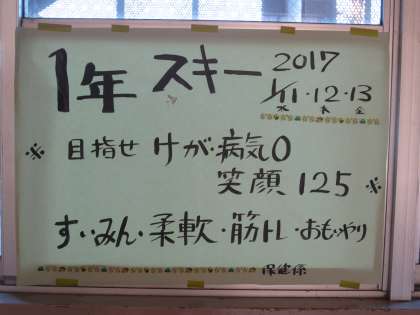 1年 スキー 2017
1/11・12・13
水 木 金
※ 目指せ けが・病気0
笑顔 125 ※
すいみん・柔軟・筋トレ・おもいやり
保健係